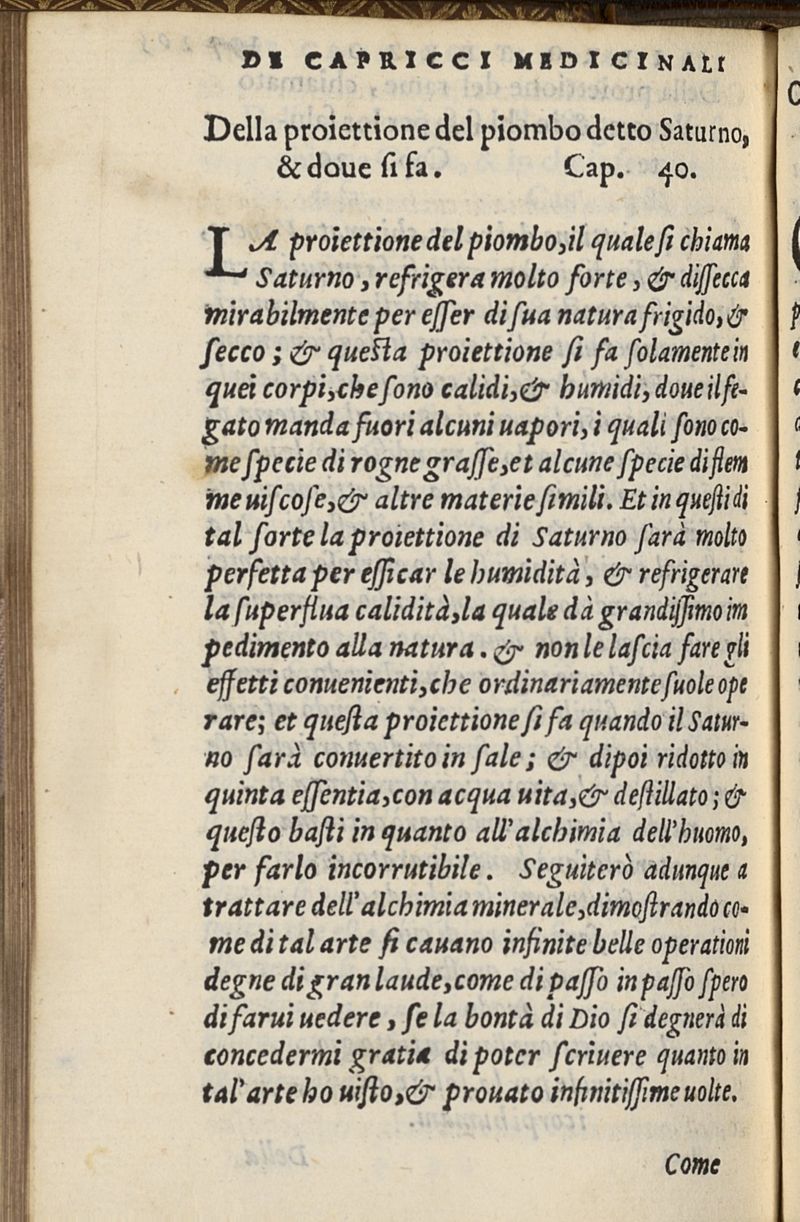 DE CAPRICCI MEDICINALI
Della proiettione del piombo detto Saturno,
& doue si fa. Cap. 40.
LA proiettione del piombo, il quale si chiama
Saturno, refrigera molto forte, & dissecca
mirabilmente per esser di sua natura frigido, &
secco; & questa proiettione si fa solamente in
quei corpi, che sono calidi, & humidi, doue il fe-
gato manda fuori alcuni uapori, i quali sono co-
me specie di rogne grasse, et alcune specie di flem
me uiscose, & altre materie simili. Et in questi di
tal sorte la proiettione di Saturno sarà molto
perfetta per essicar le humidità, & refrigerare
la superflua calidità, la quale dà grandissimo im
pedimento alla natura. & non le lascia fare gli
effetti conuenienti, che ordinariamente suole ope
rare; et questa proiettione si fa quando il Satur-
no sarà conuertito in sale; & dipoi ridotto in
quinta essentia, con acqua uita, & destillato; &
questo basti in quanto all'alchimia dell'huomo,
per farlo incorrutibile. Seguiterò adunque a
trattare dell'alchimia minerale, dimostrando co-
me di tal arte si cauano infinite belle operationi
degne di gran laude, come di passo in passo spero
di farui uedere, se la bontà di Dio si degnerà di
concedermi gratia di poter scriuere quanto in
tal'arte ho uisto, & prouato infinitissime uolte.
Come